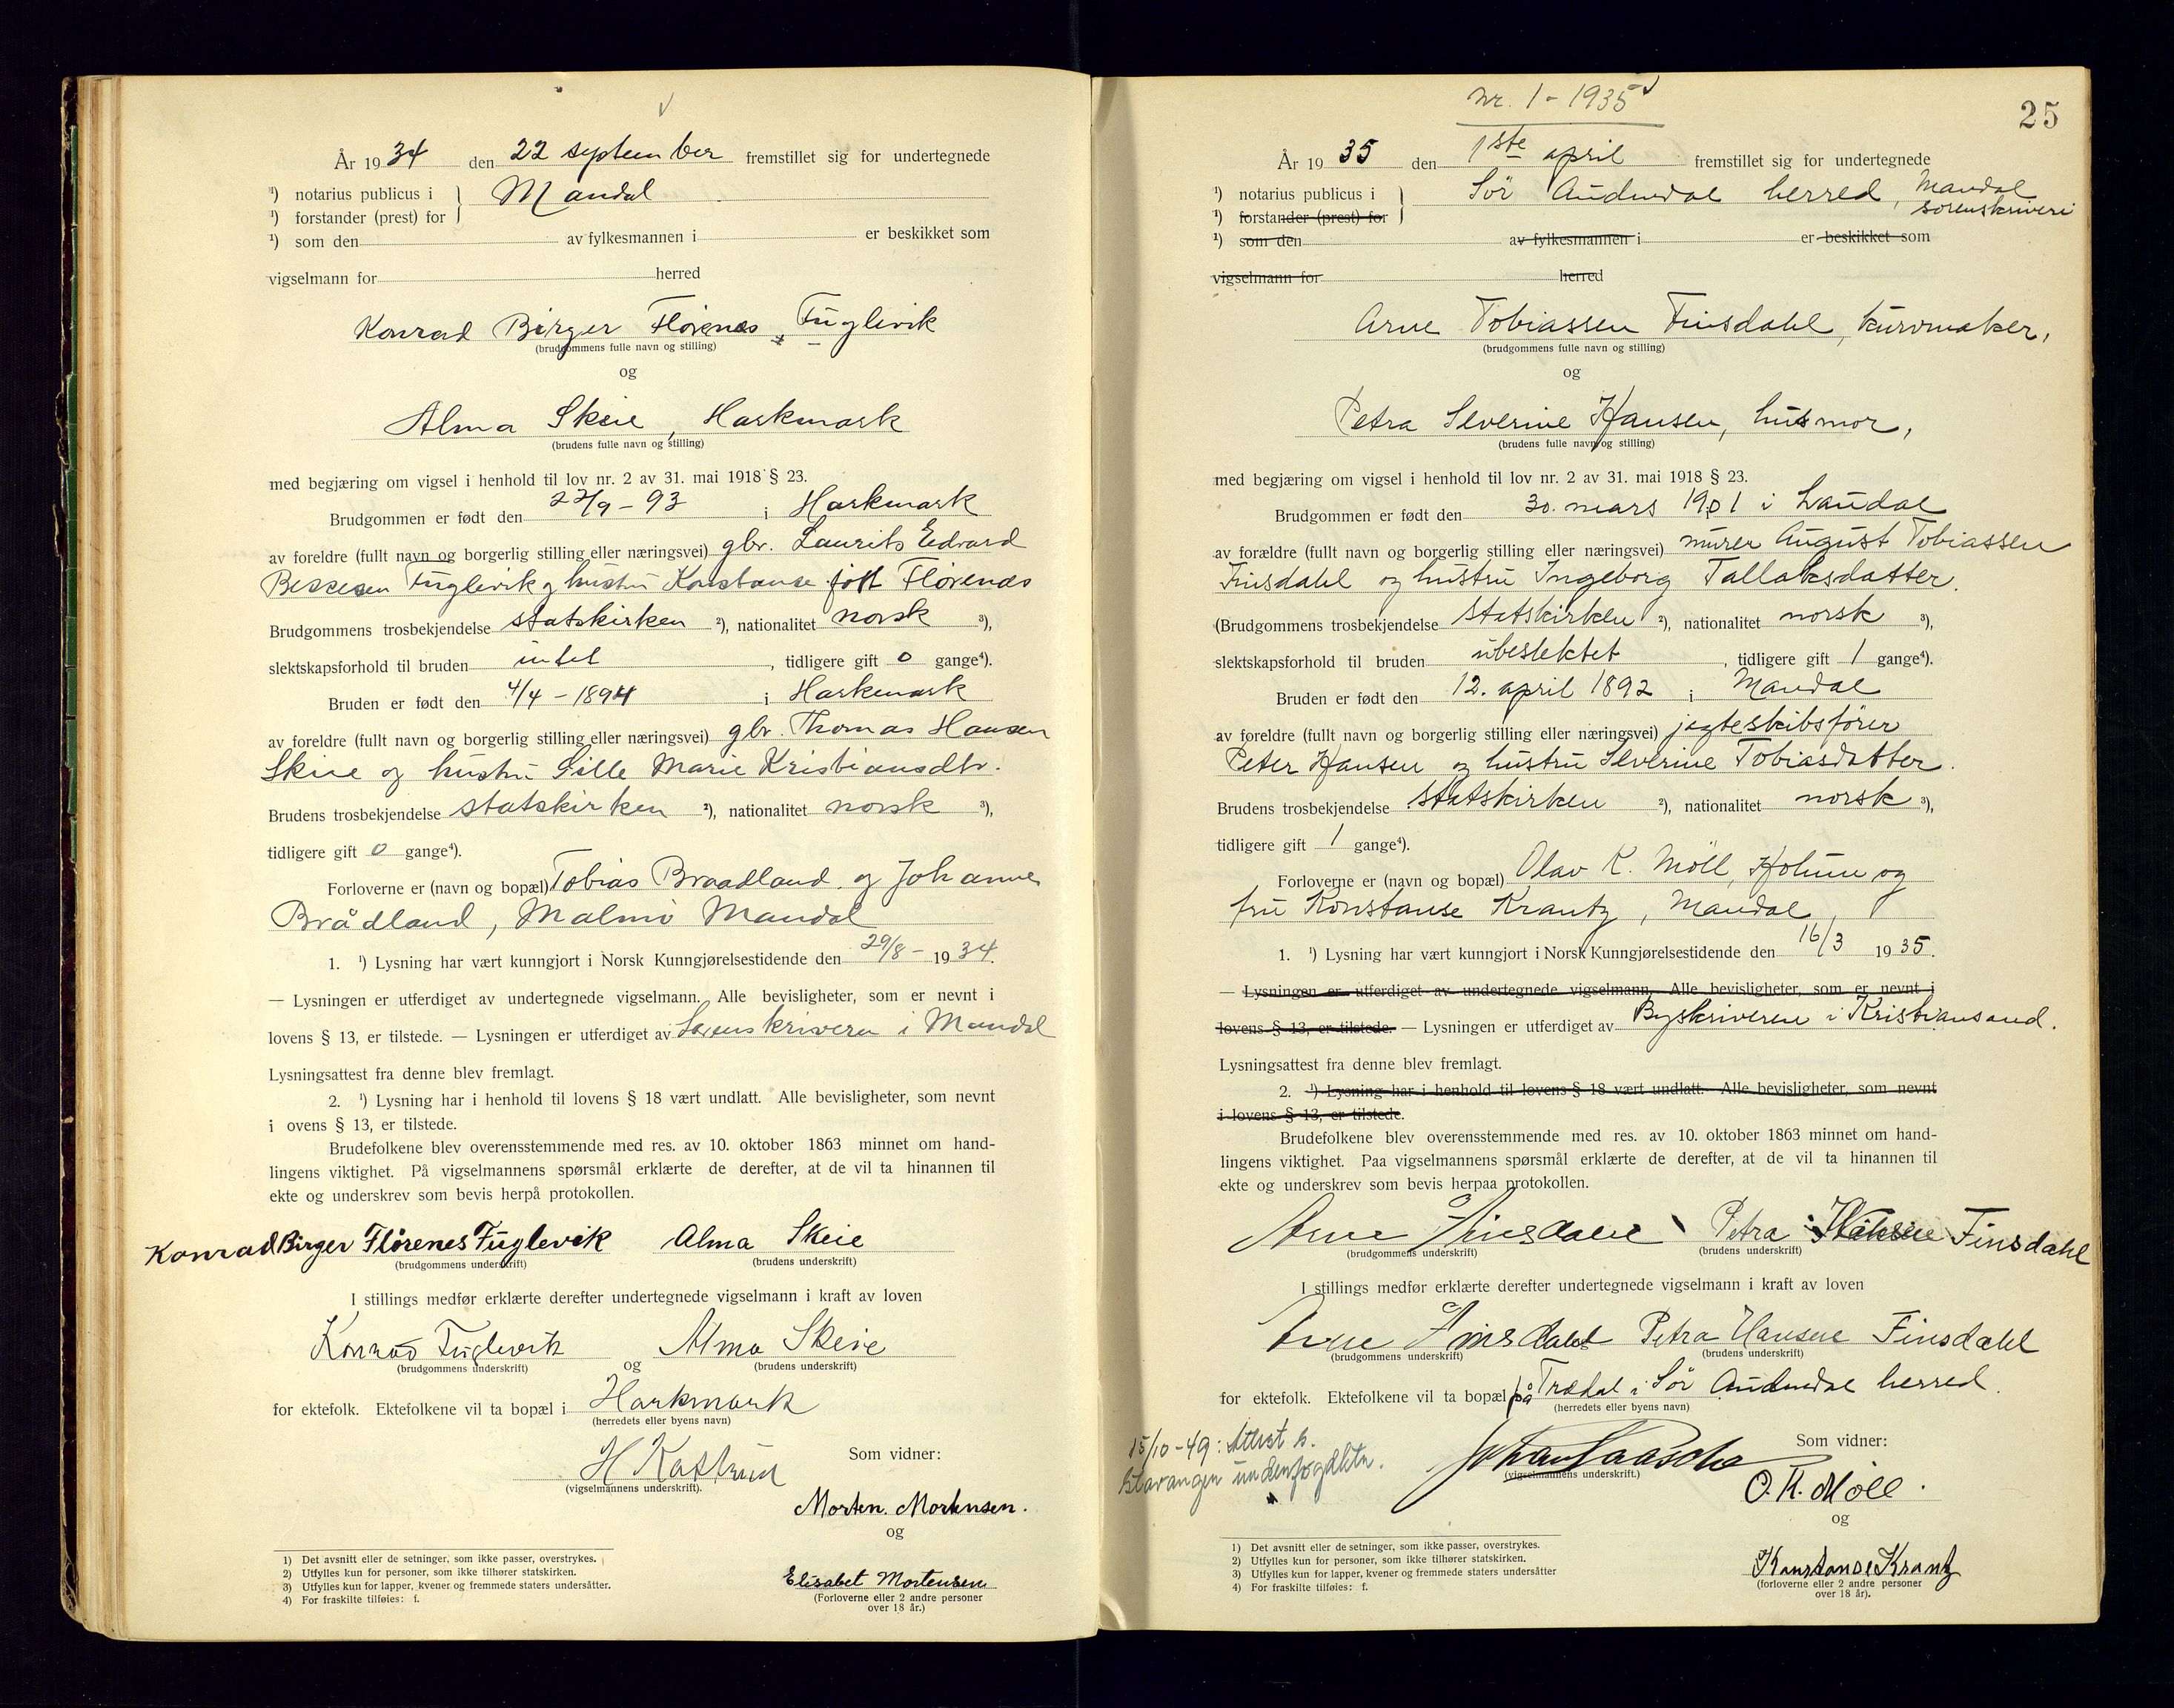 År 1934 den 22 september fremstillet sig for undertegnede
¹) notarius publicus i
¹) forstander (prest) for
Mandal
¹) som den av fylkesmannen i er beskikket som
vigselmann for herred
Konrad Birger Florenes, Fuglevik
(brudgommens fulle navn og stilling)
og
Alma Skeie, Harkmark
(brudens fulle navn og stilling)
med begjæring om vigsel i henhold til lov nr. 2 av 31. mai 1918 § 23.
Brudgommen er født den 22/9 - 93 i Harkmark
av foreldre (fullt navn og borgerlig stilling eller næringsvei) gbr. Laurits Edvard
Fuglevik og hustru Konstanse født Florenes
Brudgommens trosbekjendelse statskirken ²), nationalitet norsk ³),
slektskapsforhold til bruden intet, tidligere gift 0 gange⁴).
Bruden er født den 4/4 - 1894 i Harkmark
av foreldre (fullt navn og borgerlig stilling eller næringsvei) gbr. Thomas Hansen
Skeie og hustru Sille Marie Kristiansdtr.
Brudens trosbekjendelse statskirken ²), nationalitet norsk ³),
tidligere gift 0 gange⁴).
Forloverne er (navn og bopæl) Tobias Braadland og Johanne
Brådland, Malmö Mandal
1. ¹) Lysning har vært kunngjort i Norsk Kunngjørelsestidende den 29/8 - 1934.
— Lysningen er utferdiget av undertegnede vigselmann. Alle bevisligheter, som er nevnt i
lovens § 13, er tilstede. — Lysningen er utferdiget av Sorenskriveren i Mandal
Lysningsattest fra denne blev fremlagt.
2. ¹) Lysning har i henhold til lovens § 18 vært undlatt. Alle bevisligheter, som nevnt
i ovens § 13, er tilstede.
Brudefolkene blev overensstemmende med res. av 10. oktober 1863 minnet om hand-
lingens viktighet. På vigselmannens spørsmål erklærte de derefter, at de vil ta hinannen til
ekte og underskrev som bevis herpå protokollen.
Konrad Birger Florenes Fuglevik Alma Skeie
(brudgommens underskrift) (brudens underskrift)
I stillings medfør erklærte derefter undertegnede vigselmann i kraft av loven
Konrad Fuglevik og Alma Skeie
(brudgommens underskrift) (brudens underskrift)
for ektefolk. Ektefolkene vil ta bopæl i Harkmark
(herredets eller byens navn)
Som vidner:
H Kastrud
(vigselmannens underskrift).
Morten. Mortensen.
og
Elisabet Mortensen
(Forloverne eller 2 andre personer
over 18 år.)
1) Det avsnitt eller de setninger, som ikke passer, overstrykes.
2) Utfylles kun for personer, som ikke tilhører statskirken.
3) Utfylles kun for lapper, kvener og fremmede staters undersåtter.
4) For fraskilte tilføies: f.
nr. 1 - 1935
25
År 1935 den 1ste april fremstillet sig for undertegnede
¹) notarius publicus i
¹) forstander (prest) for
Sör Audnedal herred, Mandal
sorenskriveri
¹) som den av fylkesmannen i er beskikket som
vigselmann for herred
Arne Tobiassen Finsdahl, kurvmaker,
(brudgommens fulle navn og stilling)
og
Petra Severine Hansen, husmor,
(brudens fulle navn og stilling)
med begjæring om vigsel i henhold til lov nr. 2 av 31. mai 1918 § 23.
Brudgommen er født den 30. mars 1901 i Laudal
av forældre (fullt navn og borgerlig stilling eller næringsvei) murer August Tobiassen
Finsdahl og hustru Ingeborg Tallaksdatter.
(Brudgommens trosbekjendelse statskirken ²), nationalitet norsk ³),
slektskapsforhold til bruden ubeslektet, tidligere gift 1 gange⁴).
Bruden er født den 12. april 1892 i Mandal
av foreldre (fullt navn og borgerlig stilling eller næringsvei) jagteskibsfører
Peter Hansen og hustru Severine Tobiasdatter.
Brudens trosbekjendelse statskirken ²), nationalitet norsk ³),
tidligere gift 1 gange⁴).
Forloverne er (navn og bopæl) Olav K. Möll, Holum og
fru Konstanse Krantz, Mandal,
1. ¹) Lysning har vært kunngjort i Norsk Kunngjørelsestidende den 16/3 1935.
— Lysningen er utferdiget av undertegnede vigselmann. Alle bevisligheter, som er nevnt i
lovens § 13, er tilstede. — Lysningen er utferdiget av Byskriveren i Kristiansand.
Lysningsattest fra denne blev fremlagt.
2. ¹) Lysning har i henhold til lovens § 18 vært undlatt. Alle bevisligheter, som nevnt
i lovens § 13, er tilstede.
Brudefolkene blev overensstemmende med res. av 10. oktober 1863 minnet om hand-
lingens viktighet. Paa vigselmannens spørsmål erklærte de derefter, at de vil ta hinannen til
ekte og underskrev som bevis herpaa protokollen.
Arne Finsdahl Petra Hansen Finsdahl
(brudgommens underskrift) (brudens underskrift)
I stillings medfør erklærte derefter undertegnede vigselmann i kraft av loven
Arne Finsdahl Petra Hansen Finsdahl
(brudgommens underskrift) (brudens underskrift)
for ektefolk. Ektefolkene vil ta bopæl på Trædal i Sör Audnedal herred.
(herredets eller byens navn)
15/10-49: Attest t.
Stavanger underfogdktr.
Som vidner:
(vigselmannens underskrift.)
O. K. Möll.
og
Konstanse Krantz
(forloverne eller 2 andre personer
over 18 år).
1) Det avsnitt eller de setninger, som ikke passer, overstrykes.
2) Utfylles kun for personer, som ikke tilhører statskirken.
3) Utfylles kun for lapper, kvener og fremmede staters undersåtter
4) For fraskilte tilføies: f.